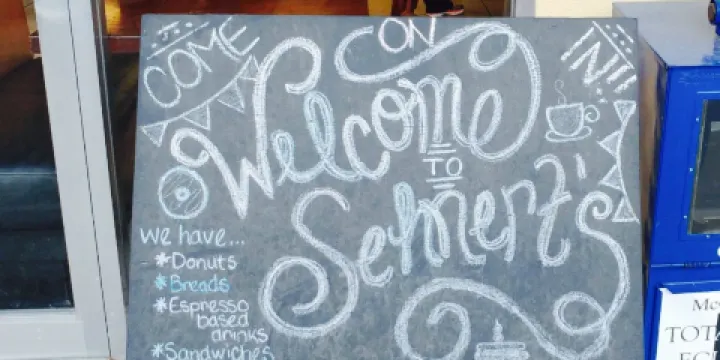 COME ON IN!!
Welcome
TO
Sehnert's
we have...
*Donuts
*Breads
*Espresso
based
drinks
*Sandwiches